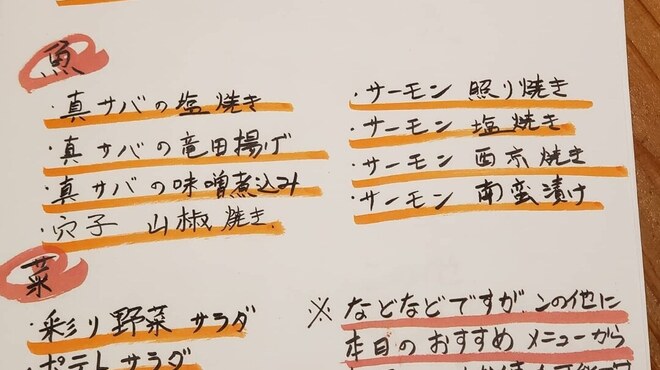 魚
・真サバの塩焼き
・真サバの竜田揚げ
・真サバの味噌煮込み
・穴子 山椒焼き
・サーモン 照り焼き
・サーモン 塩焼き
・サーモン 西京焼き
・サーモン 南蛮漬け
菜
・彩り野菜サラダ
・ポテトサラダ
※などなどですが、この他に
本日のおすすめメニューから